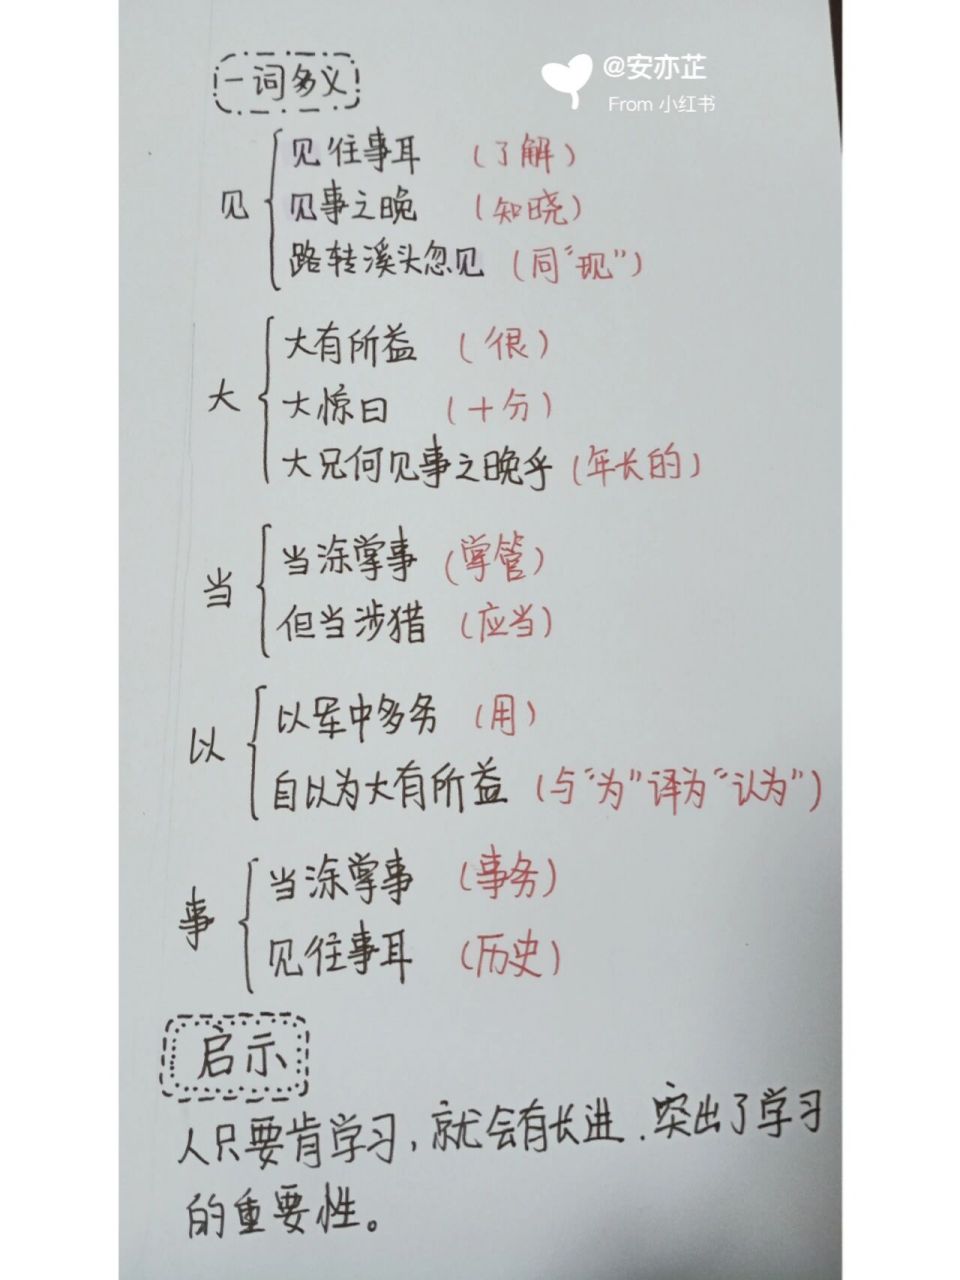 @安亦芷
From 小红书
一词多义
见往事耳 (了解)
见 见事之晚 (知晓)
路转溪头忽见 (同“现”)
大有所益 (很)
大 大惊曰 (十分)
大兄何见事之晚乎 (年长的)
当涂掌事 (掌管)
当
但当涉猎 (应当)
以军中多务 (用)
以
自以为大有所益 (与“为”译为“认为”)
当涂掌事 (事务)
事
见往事耳 (历史)
启示
人只要肯学习，就会有长进.突出了学习
的重要性。